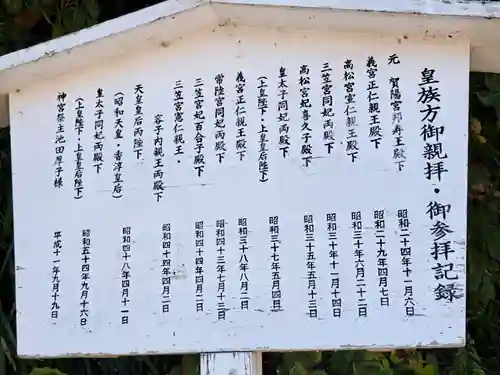 皇族方御親拝・御参拝記録
元 賀陽宮邦寿王殿下 昭和二十四年十一月六日
義宮正仁親王殿下 昭和二十九年四月七日
高松宮宣仁親王殿下 昭和三十年六月二十二日
三笠宮崇仁親王殿下 昭和三十年十一月十四日
高松宮妃喜久子殿下 昭和三十五年五月十三日
皇太子同妃両殿下 昭和三十七年五月四日
(上皇陛下・上皇后陛下)
義宮正仁親王殿下 昭和三十八年八月二日
常陸宮同妃両殿下 昭和四十三年七月十二日
三笠宮妃百合子殿下 昭和四十四年四月二日
三笠宮憲仁親王・
容子内親王両殿下 昭和四十四年四月二日
天皇皇后両陛下 昭和四十八年四月十一日
(昭和天皇・香淳皇后)
皇太子同妃両殿下 昭和五十四年九月十六日
(上皇陛下・上皇后陛下)
神宮祭主池田厚子様 平成十一年九月十九日